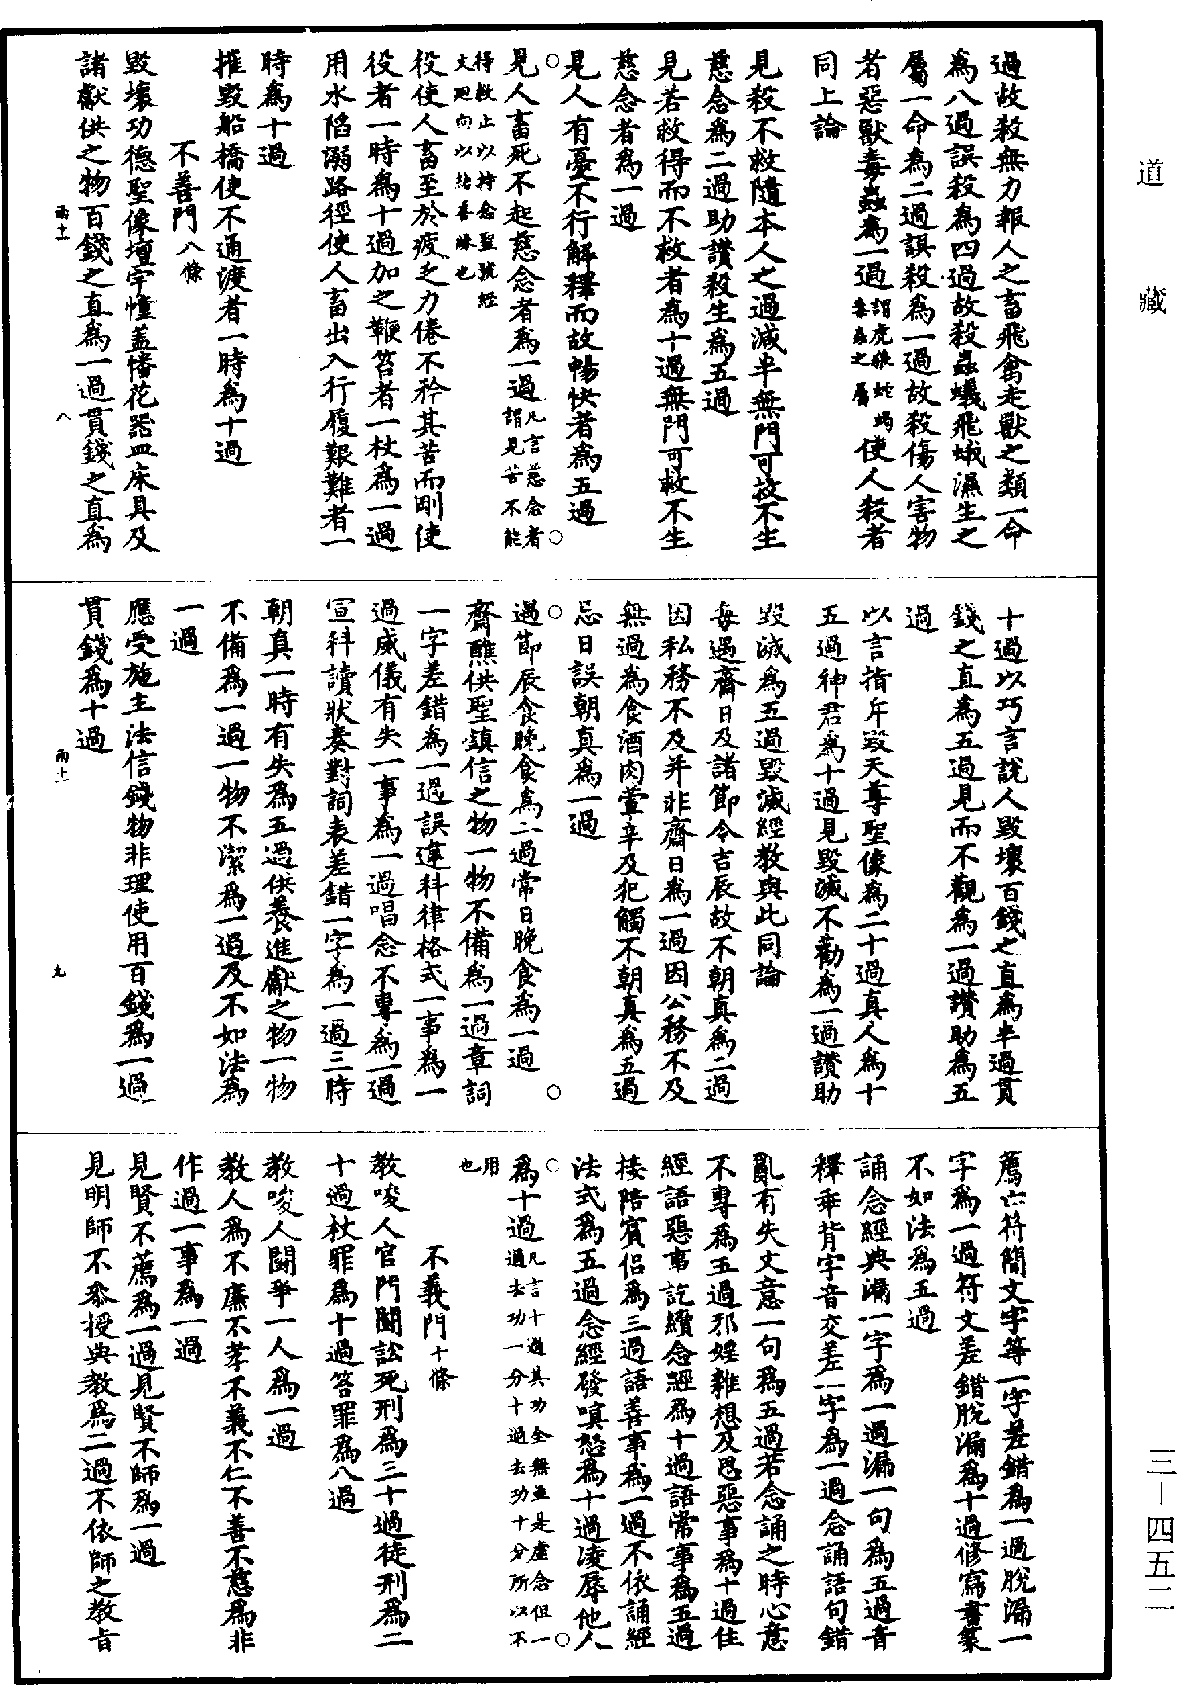 道藏
三—四五二
過故殺無力報人之畜飛禽走獸之類一命
為八過誤殺為四過故殺蟲蟻飛蛾濕生之
屬一命為二過誤殺為一過故殺傷人害物
者惡獸毒蟲為一過謂虎狼蛇蝎毒蟲之屬使人殺者
同上論
見殺不救隨本人之過減半無門可救不生
慈念為二過助讚殺生為五過
見若救得而不救者為十過無門可救不生
慈念者為一過
見人有憂不行解釋而故暢快者為五過
見人畜死不起慈念者為一過凡言慈念者謂見苦不能
得救止以持念聖號經文迴向以結善緣也
役使人畜至於疲乏力倦不矜其苦而剛使
役者一時為十過加之鞭笞者一杖為一過
用水陷溺路徑使人畜出入行履艱難者一
時為十過
摧毀船橋使不通渡者一時為十過
不善門八條
毀壞功德聖像壇宇幢蓋旛花器皿床具及
諸獻供之物百錢之直為一過貫錢之直為
雨十一
八
十過以巧言說人毀壞百錢之直為半過貫
錢之直為五過見而不觀為一過讚助為五
過
以言指斥毀天尊聖像為二十過真人為十
五過神君為十過見毀滅不勸為一過讚助
毀滅為五過毀滅經教與此同論
每遇齋日及諸節令吉辰故不朝真為二過
因私務不及并非齋日為一過因公務不及
無過為食酒肉葷辛及犯觸不朝真為五過
忌日誤朝真為一過
遇節辰食晚食為二過常日晚食為一過
齋醮供聖鎮信之物一物不備為一過章詞
一字差錯為一過誤違科律格式一事為一
過威儀有失一事為一過唱念不專為一過
宣科讀狀奏對詞表差錯一字為一過三時
朝真一時有失為五過供養進獻之物一物
不備為一過一物不潔為一過及不如法為
一過
應受施主法信錢物非理使用百錢為一過
貫錢為十過
雨十一
九
薦亡符簡文字等一字差錯為一過脫漏一
字為一過符文差錯脫漏為十過修寫書篆
不如法為五過
誦念經典漏一字為一過漏一句為五過音
釋乖背字音交差一字為一過念誦語句錯
亂有失文意一句為五過若念誦之時心意
不專為五過邪婬雜想及思惡事為十過住
經語惡事訖續念經為十過語常事為五過
接陪賓侶為三過語善事為一過不依誦經
法式為五過念經發嗔怒為十過凌辱他人
為十過凡言十過其功全無並是虛念但一過去功一分十過去功十分所以不
用也
不義門十條
教唆人官門鬬訟死刑為三十過徒刑為二
十過杖罪為十過笞罪為八過
教唆人鬬爭一人為一過
教人為不廉不孝不義不仁不善不慈為非
作過一事為一過
見賢不薦為一過見賢不師為一過
見明師不參授典教為二過不依師之教旨